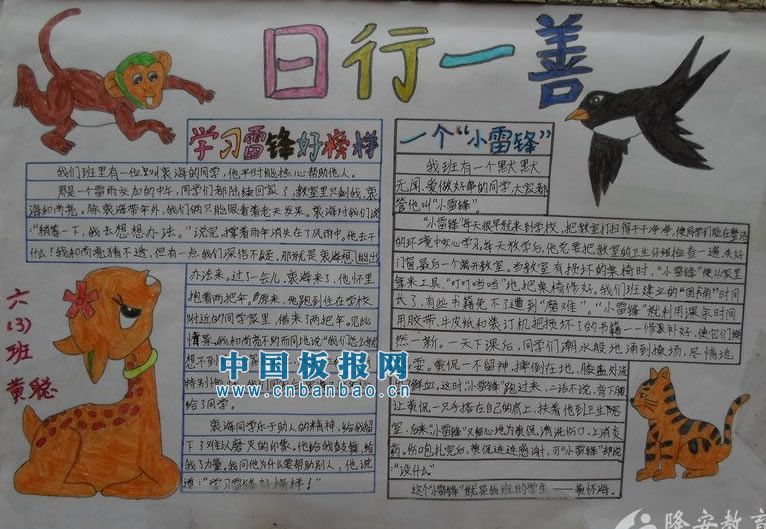 日行一善
学习雷锋好榜样
我们班里有一位叫裘海的同学，他平时能热心帮助他人。
那是一个雷雨交加的中午，同学们都陆续回家了，教室里只剩我、裘
海和尚亮。除裘海带伞外，我们俩只能眼看着老天发呆。裘海对我们说：
“稍等一下，我去想想办法。”说完，撑着雨伞消失在了风雨中。他去干
什么？我和尚亮猜不透，但有一点我们深信不疑，那就是裘海想
办法来。过了一会儿，裘海来了，他怀里
抱着两把伞。原来，他跑到住在学校
附近的同学家里，借来了两把伞。见此
情景，我和尚亮不约而同地说
想不到
特别
给了同学。
裘海同学乐于助人的精神，给我留
下了难以磨灭的印象。他给我鼓舞，给
我了力量。我问他为什么要帮助别人，他说
道：“学习雷锋好榜样！”
一个“小雷锋”
我班有一个默默
无闻、爱做好事的同学，大家都
管他叫“小雷锋”。
“小雷锋”每天很早就来到学校，把教室打扫得干干净净，使同学们能在整洁
的环境中安心学习。每天放学后，他总要把教室的卫生仔细检查一遍，关好
门窗，最后一个离开教室。当教室有损坏的桌椅时，“小雷锋”便从家里
拿来工具，“叮叮当当”地把桌椅修好。我们班建立的“图书角”时间
长了，有些书籍免不了遭到“磨难”。“小雷锋”就利用课余时间
用胶带、牛皮纸和装订机把损坏了的书籍一一修复补好，使它们焕
然一新。一天下课后，同学们潮水般地涌到操场，尽情地
玩耍。黄侃一不留神，摔倒在地，膝盖处流
出鲜血，这时“小雷锋”跑过来，二话不说，弯下腰
让黄侃一只手搭在自己的肩上，扶着他到卫生院
室，后来“小雷锋”又细心地为黄侃清洗伤口，上消炎
药。伤口包扎完后，黄侃连连感谢，可“小雷锋”却说：
“没什么”
这个“小雷锋”就是我班的学生——黄怀海。
六
(3)
班
黄聪
中国板报网
www.cnbanbao.cn
隆安教育